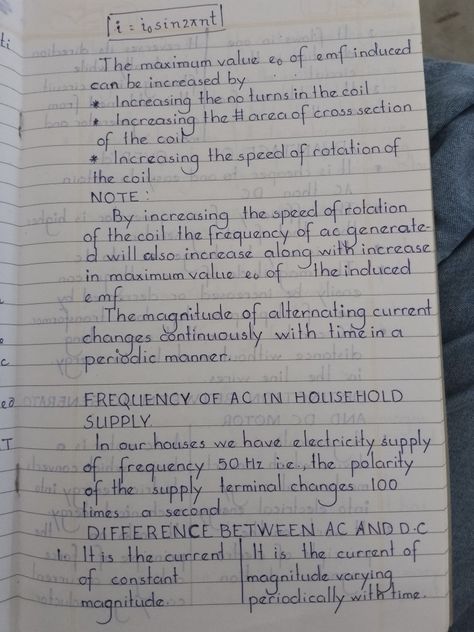 i = i₀ sin2πnt
The maximum value e₀ of emf induced
can be increased by
* Increasing the no turns in the coil
* Increasing the area of cross section
of the coil
* Increasing the speed of rotation of
the coil
NOTE :
By increasing the speed of rotation
of the coil the frequency of ac generate-
d will also increase along with increase
in maximum value e₀ of the induced
emf
The magnitude of alternating current
changes continuously with time in a
periodic manner.
FREQUENCY OF AC IN HOUSEHOLD
SUPPLY
In our houses we have electricity supply
of frequency 50 Hz i.e., the polarity
of the supply terminal changes 100
times a second
DIFFERENCE BETWEEN AC AND D.C
1. It is the current | It is the current of
of constant | magnitude varying
magnitude. | periodically with time.